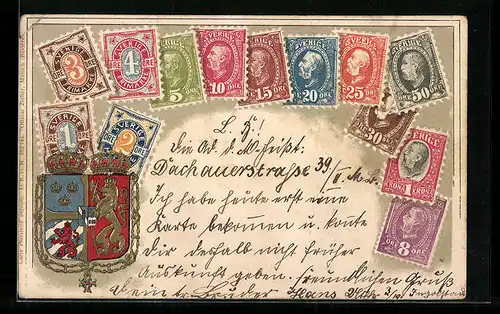 SVERIGE
3
ÖRE
FRIMÄRKE
SVERIGE
4
ÖRE
FRIMÄRKE
SVERIGE
5 ÖRE
SVERIGE
10 ÖRE
SVERIGE
15 ÖRE
SVERIGE
20 ÖRE
SVERIGE
25 ÖRE
SVERIGE
50 ÖRE
SVERIGE
1
SVERIGE
2
30 ÖRE
SVERIGE
KRONA 1 KRONA
8
ÖRE ÖRE
L. H!
Die Ad. d. M. heißt:
Dachauerstrasse 39/II. M.
Ich habe heute erst eine
Karte bekommen u. konte
dir deshalb nicht früher
Auskunft geben. Freundlichen Gruß
Dein tr. Bruder Hans Ingolstadt